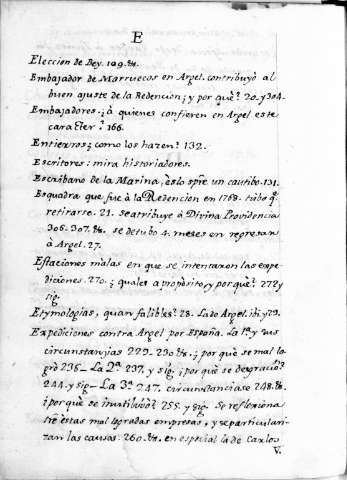 E
Eleccion de Dey. 129. &.
Embajador de Marruecos en Argel. contribuyó al
buen ajuste de la Redencion; y por què? 20. y 304.
Embajadores: ¿à quienes confieren en Argel este
caracter? 166.
Entierros; como los hazen? 132.
Escritores: mira historiadores.
Escribano de la Marina, èslo spre. un cautibo. 131.
Esquadra que fuè à la Redencion en 1768. tubo q.e
retirarse. 21. se atribuye à Divina Providencia
306. 307. &. se detubo 4. meses en regresar
à Argel. 27.
Estaciones malas en que se intentaron las expe
diciones. 270. ¿ quales a propòsito, y por què? 272 y
sig.
Etymologias, quan falibles? 28. La de Argel. ibi y 29.
Expediciones contra Argel por España. La 1.a y sus
circunstanzias 229-230. &. ¿ por què se mal lo
gro 236- La 2.a 237. y sig. ¿ por què se desgraciò?
244. y sig- La 3.a 247. circunstancias 248. &.
¿ por què se inutilizò? 255. y sig. Se reflexiona
tre estas mal logradas empresas, y se particulari-
zan las causas. 260. &. en especial la de Carlos
V.